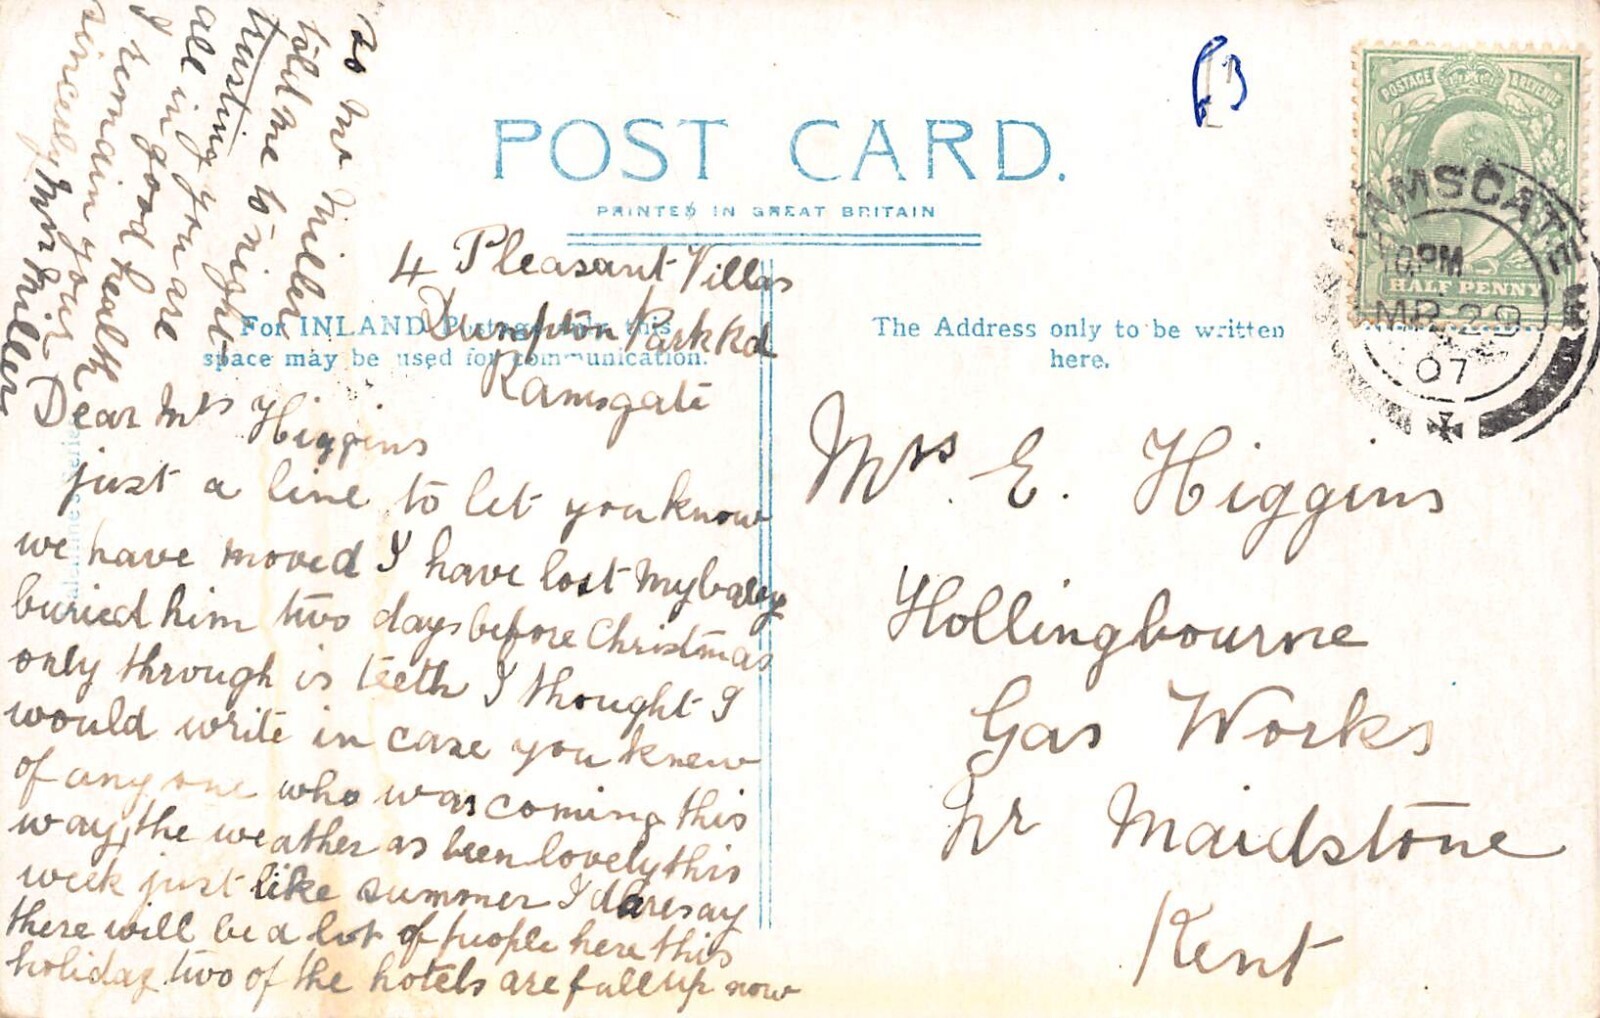 POST CARD.
PRINTED IN GREAT BRITAIN
For INLAND Postage only this
space may be used for communication.
The Address only to be written
here.
POSTAGE & REVENUE
HALF PENNY
RAMSGATE
10.PM
MR 29
07
4 Pleasant Villas
Dumpton Park Rd
Ramsgate
Dear Mrs Higgins
just a line to let you know
we have moved I have lost my baby
buried him two days before Christmas
only through is teeth I thought I
would write in case you knew
of any one who was coming this
way, the weather as been lovely this
week just like summer I daresay
there will be a lot of people here this
holiday two of the hotels are full up now
so Mr Miller
told me to night
trusting you are
all in good health
I remain your
sincerely Mrs Miller
Mrs. E. Higgins
Hollingbourne
Gas Works
Nr Maidstone
Kent